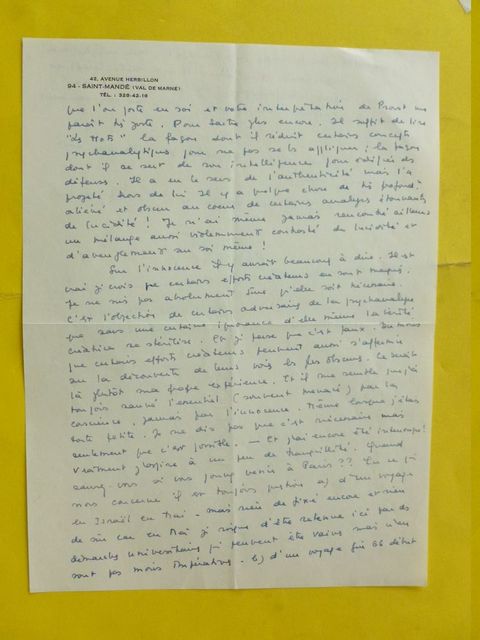 42, AVENUE HERBILLON
94 - SAINT-MANDÉ (VAL DE MARNE)
TÉL : 328-42-16
que l'on porte en soi et votre interprétation de Proust me
paraît très juste. Pour Sartre plus encore. Il suffit de lire
"Les Mots" la façon dont il réduit certains concepts
psychanalytiques pour ne pas se les appliquer ; la façon
dont il se sert de son intelligence pour édifier des
défenses. Il a eu le sens de l'authenticité mais l'a
projeté hors de lui. Il y a quelque chose de très profond,
aliéné et obscur au coeur de certaines analyses étonnantes
de lucidité ! Je n'ai même jamais rencontré ailleurs
un mélange aussi violemment contrasté de lucidité et
d'aveuglement sur soi même !
Sur l'innocence il y aurait beaucoup à dire. Il est
vrai je crois que certains efforts créateurs en sont marqués.
Je ne suis pas absolument sûre qu'elle soit nécessaire.
C'est l'objection de certains adversaires de la psychanalyse
que sans une certaine ignorance d'elle même la vérité
créatrice se stérilise. Et je pense que c'est faux. Du moins
que certains efforts créateurs peuvent aussi s'affermir
sur la découverte de leurs voies les plus obscures. Ce serait
là plutôt ma propre expérience. Et il me semble que j'ai
toujours sauvé l'essentiel (souvent menacé) par la
conscience, jamais par l'innocence. Même lorsque j'étais
toute petite. Je ne dis pas que c'est nécessaire mais
seulement que c'est possible. — Et j'ai encore été interrompue !
Vraiment j'aspire à un peu de tranquillité. Quand
saurez-vous si vous pouvez venir à Paris ?? En ce qui
nous concerne il est toujours question a) d'un voyage
en Israël en Mai - mais rien de fixé encore et rien
de sûr car en Mai je risque d'être retenue ici par des
démarches universitaires qui peuvent être vaines mais n'en
sont pas moins impératives. b) d'un voyage fin 66 début